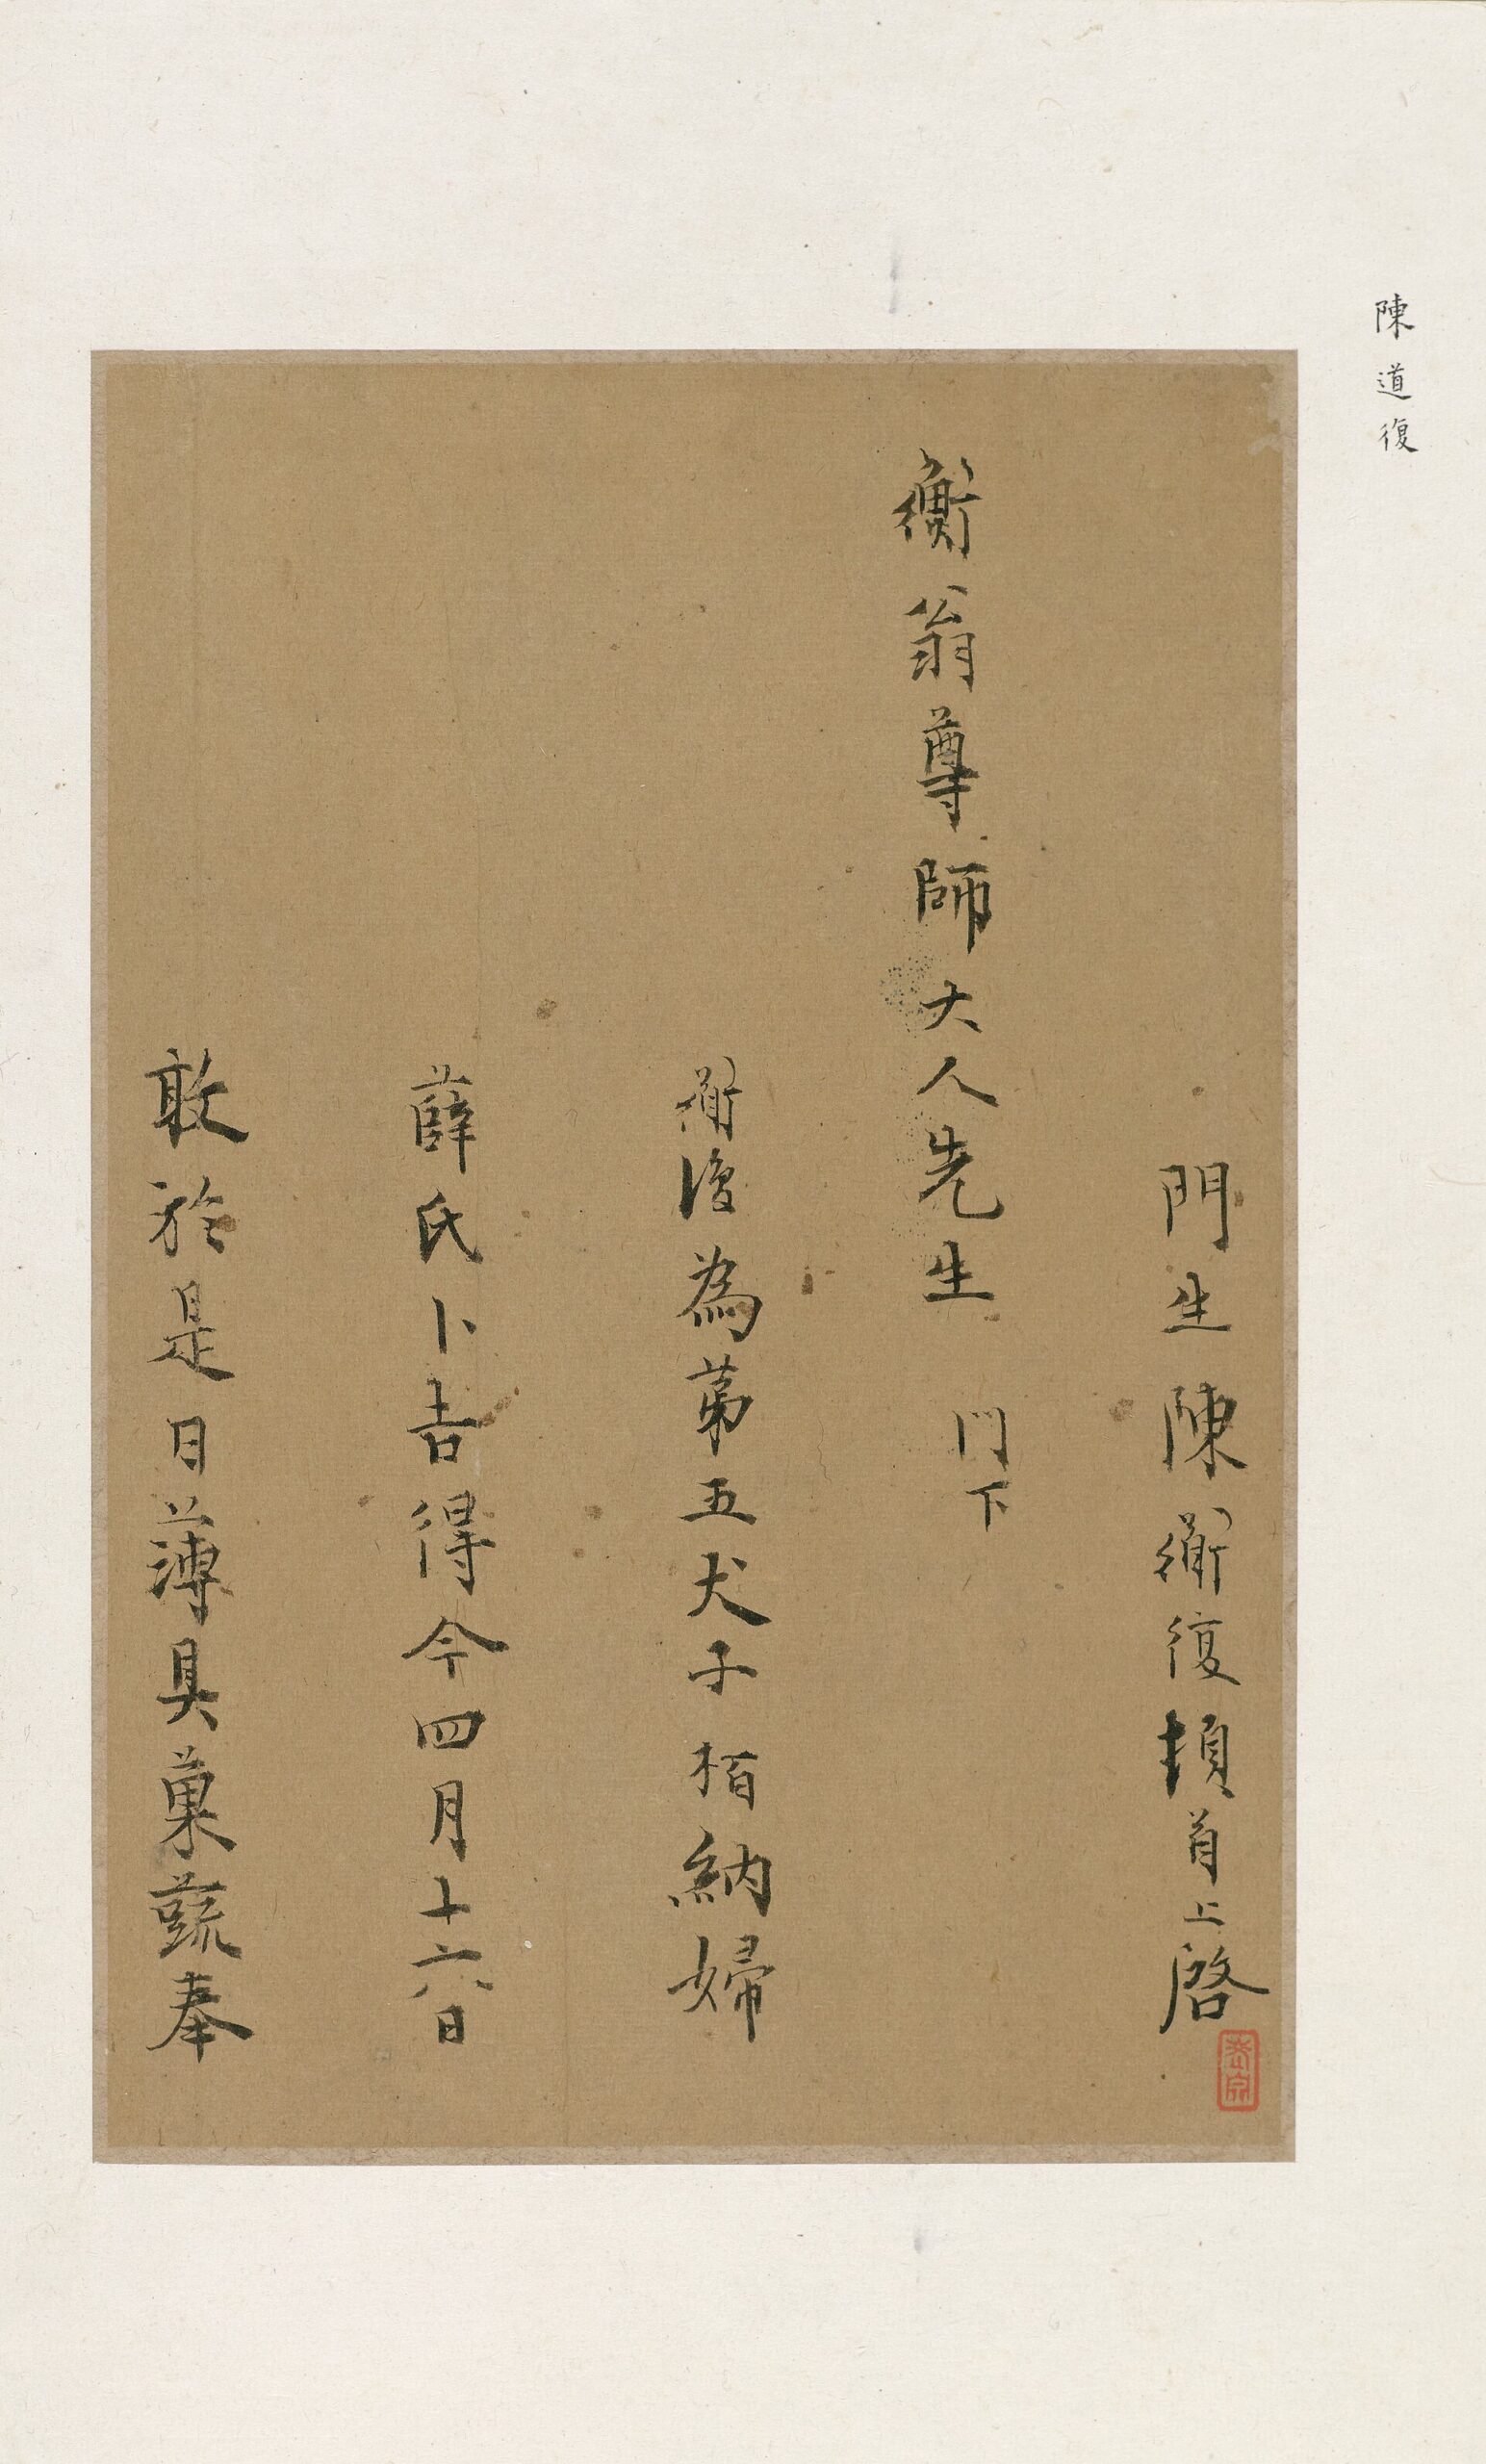 陳道復
門生陳衜復頓首上啓
衡翁尊師大人先生 門下
衜復為苐五犬子栢納婦
薛氏卜吉得今四月十六日
敢於是日薄具菓蔬奉